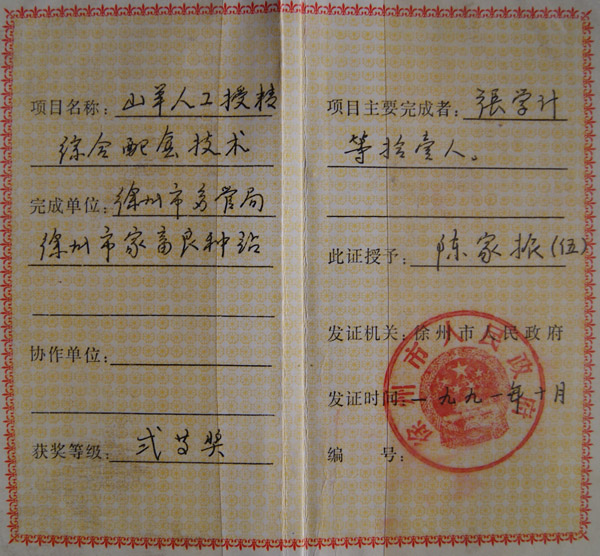 项目名称：山羊人工授精
综合配套技术
完成单位：徐州市多管局
徐州市家畜良种站
协作单位：
获奖等级：弍等奖
项目主要完成者：張学计
等拾壹人。
此证授予：陈家振(伍)
发证机关：徐州市人民政府
发证时间：一九九一年十月
编 号：
徐州市人民政府